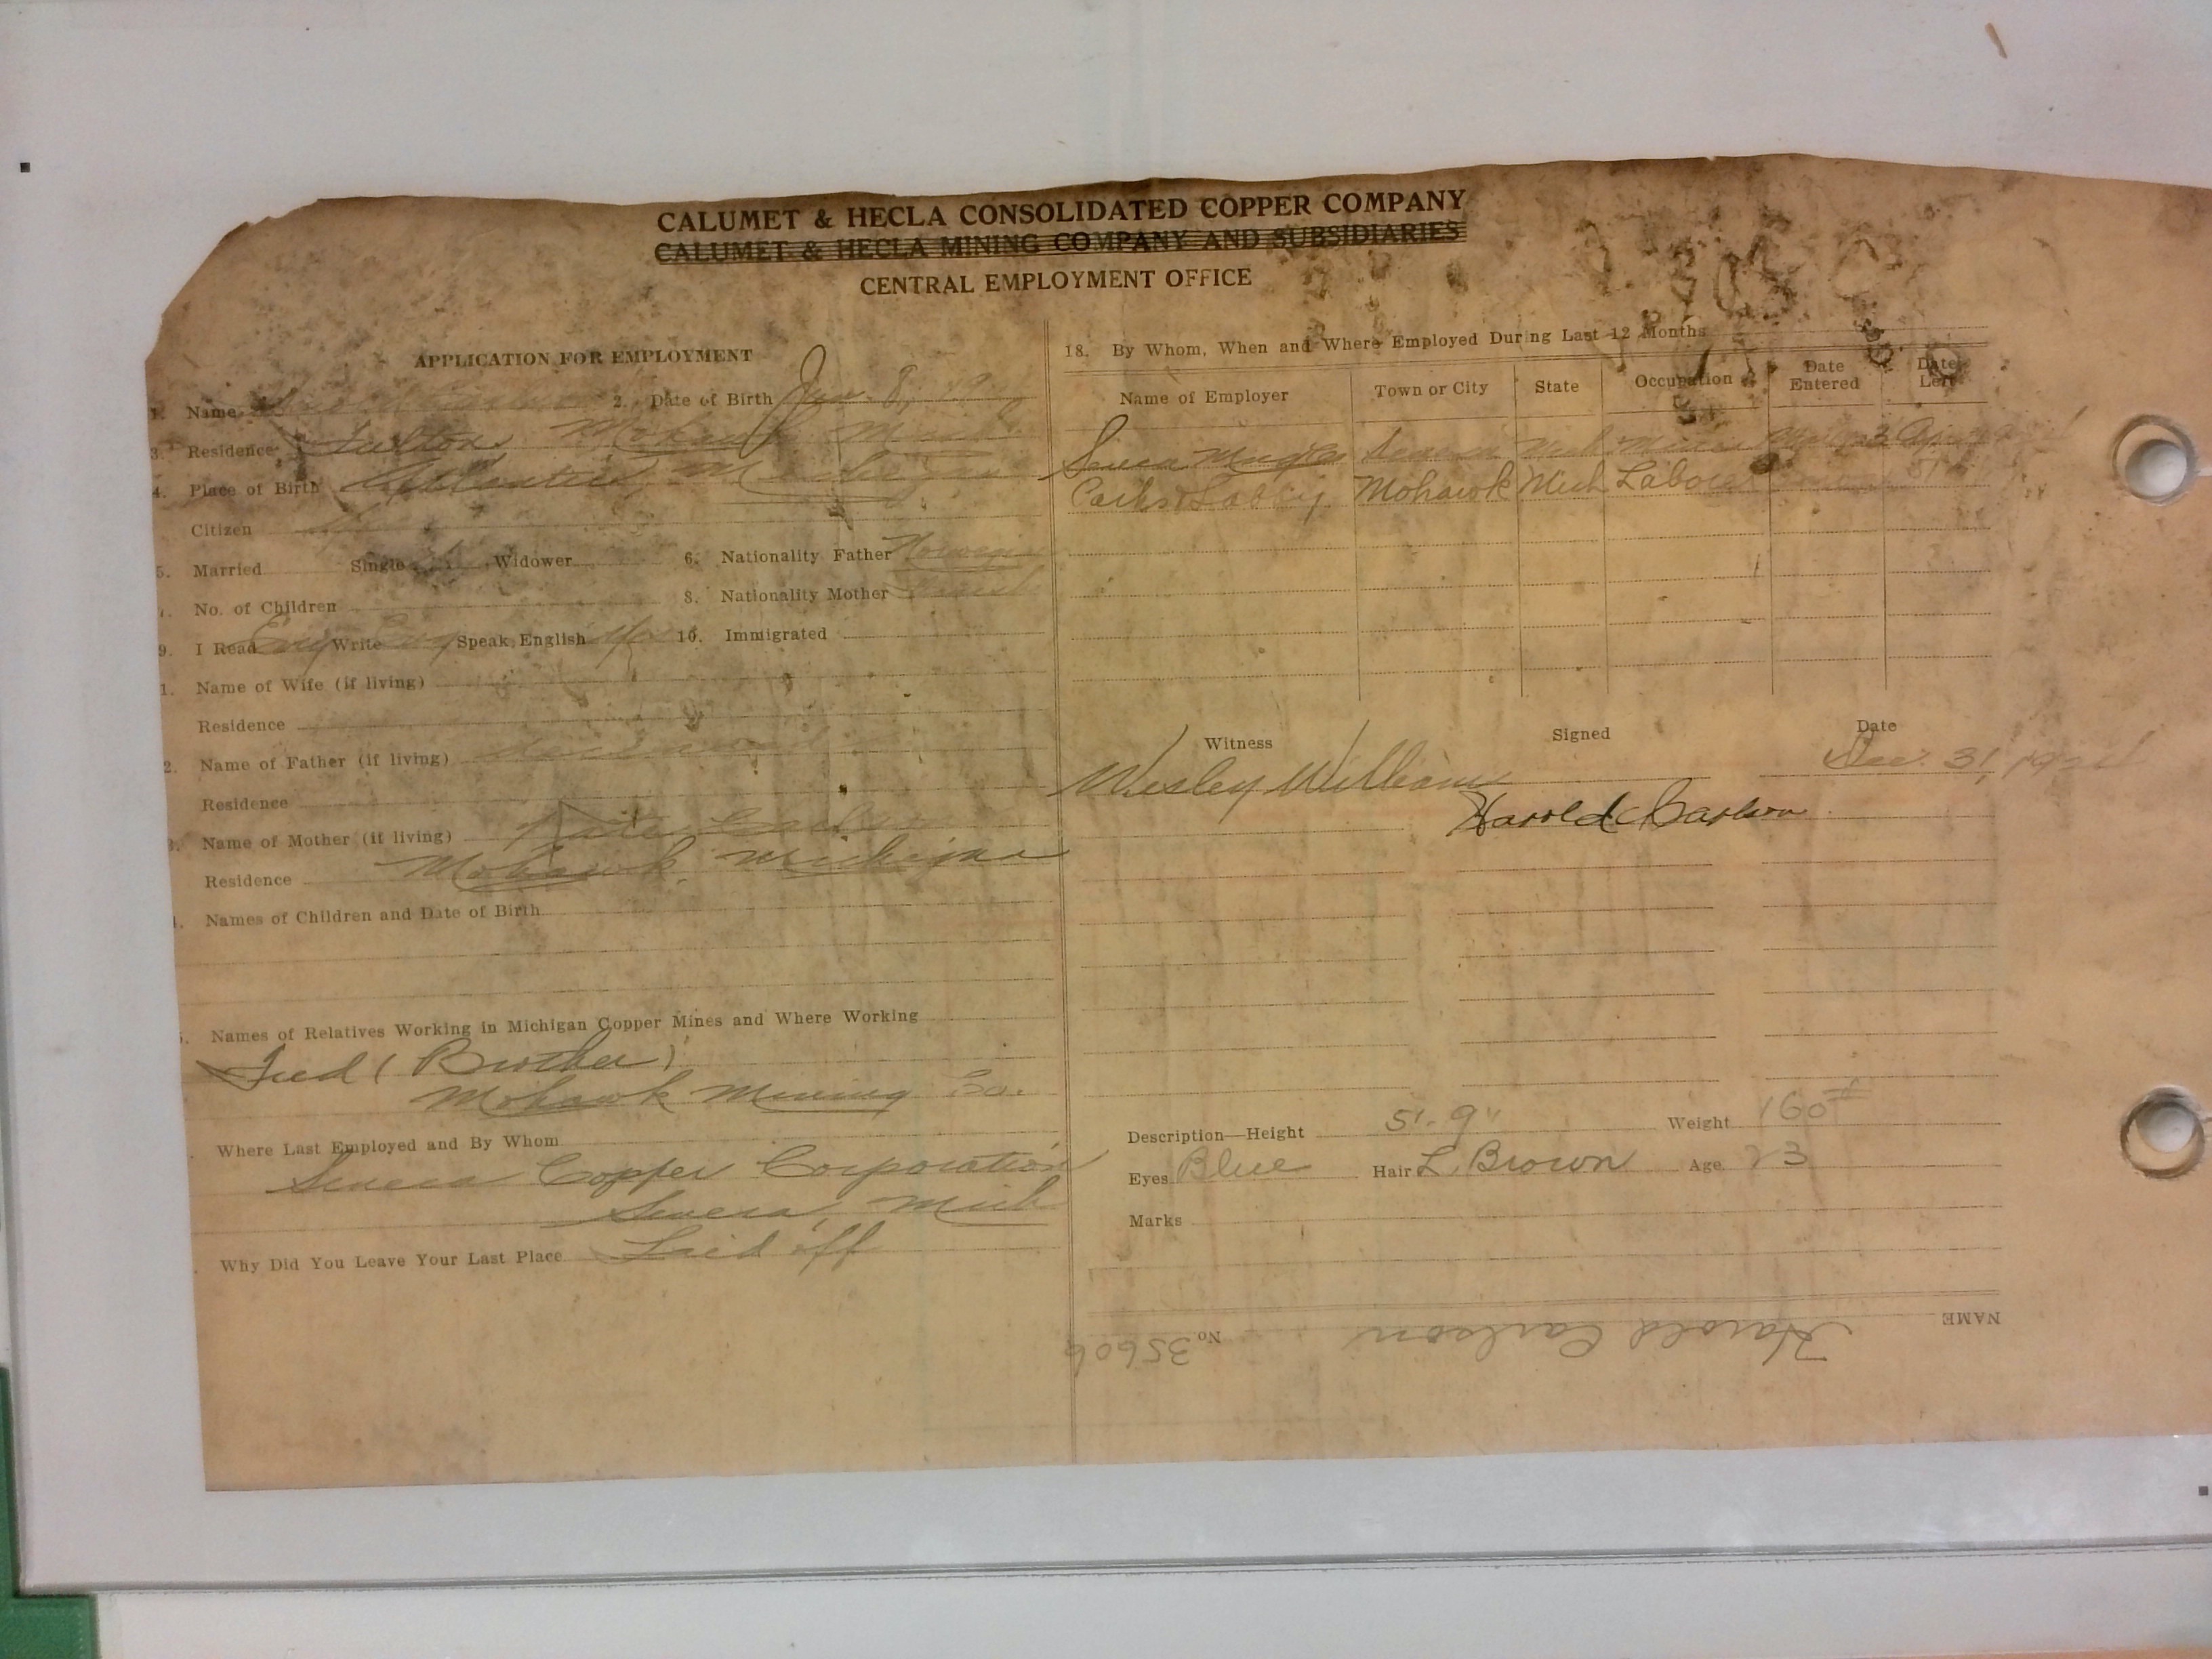 CALUMET & HECLA CONSOLIDATED COPPER COMPANY
CALUMET & HECLA MINING COMPANY AND SUBSIDIARIES
CENTRAL EMPLOYMENT OFFICE
APPLICATION FOR EMPLOYMENT
1. Name 2. Date of Birth 8, 19
3. Residence Fulton, Mohawk Mich
4. Place of Birth Atlantic, Michigan
Citizen
5. Married Single Widower 6. Nationality Father
No. of Children 8. Nationality Mother
9. I Read Eng Write Eng Speak English Yes 10. Immigrated
1. Name of Wife (if living)
Residence
2. Name of Father (if living) deceased
Residence
Name of Mother (if living)
Residence Mohawk, Michigan
Names of Children and Date of Birth
Names of Relatives Working in Michigan Copper Mines and Where Working
Fred (Brother)
Mohawk Mining Co.
Where Last Employed and By Whom
Seneca Copper Corporation
Seneca, Mich
Why Did You Leave Your Last Place Laid off
18. By Whom, When and Where Employed During Last 12 Months
Name of Employer Town or City State Occupation Date Entered Date Left
Seneca Seneca Mich
Mohawk Mich Laborer
Witness Signed Date
Wesley Williams 31,
Harold Carlson
Description—Height 5'-9" Weight 160#
Eyes Blue Hair L. Brown Age 23
Marks
NAME Harold Carlson No. 35606